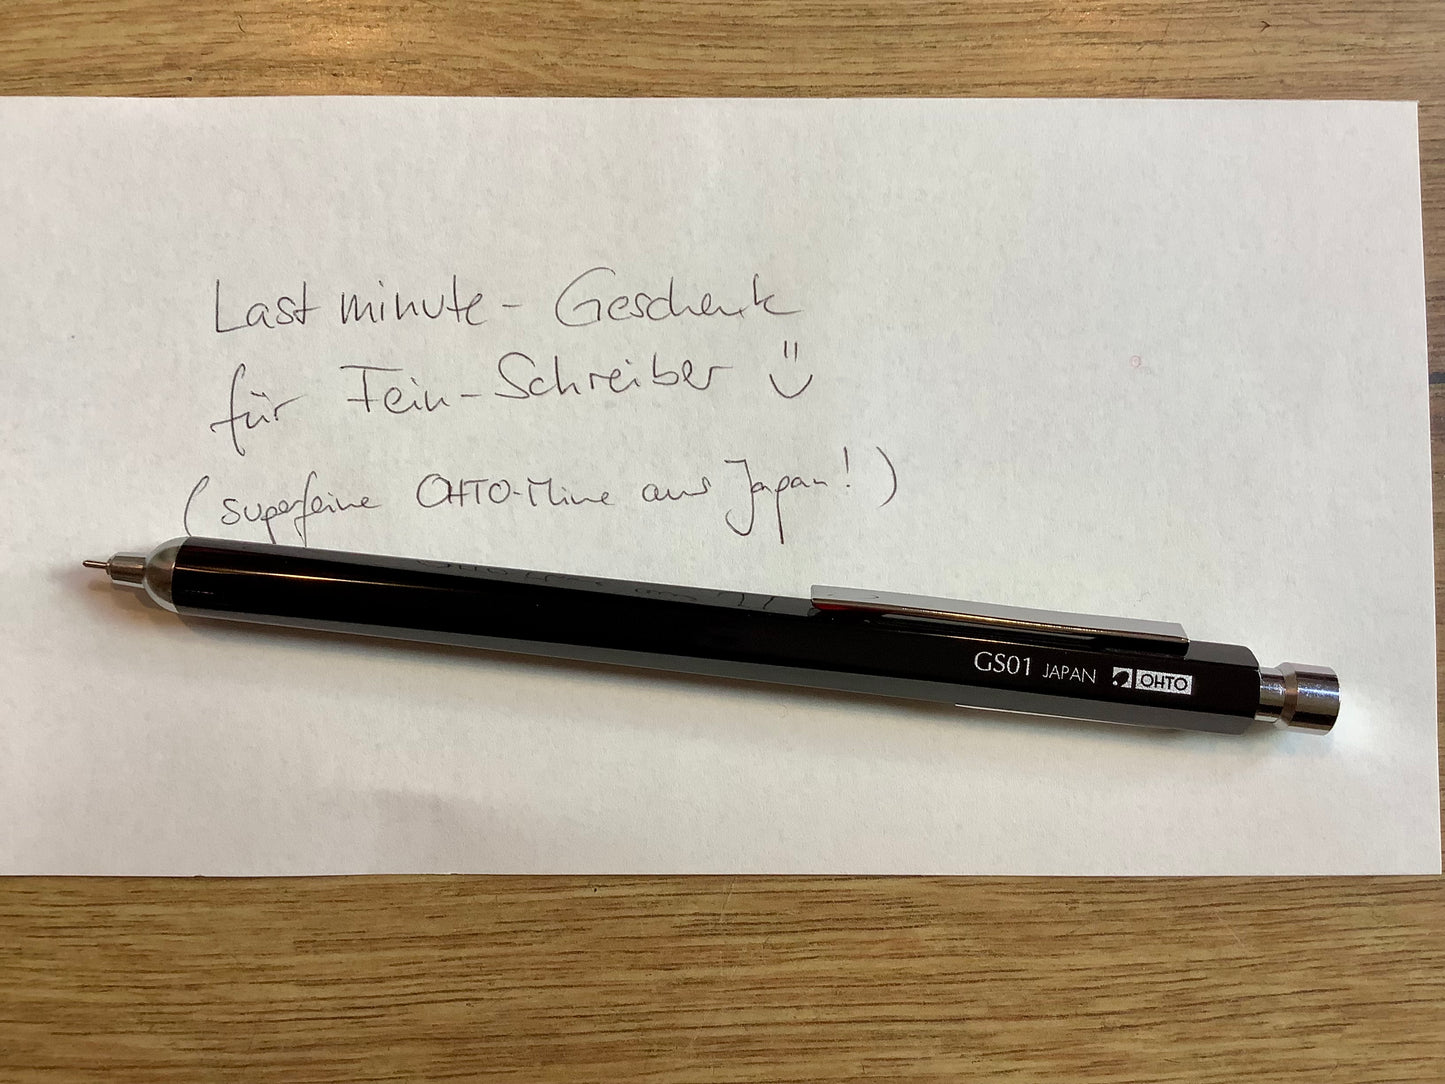 Last minute - Geschenk
für Fein-Schreiber
(superfeine OHTO-Mine aus Japan!)
GS01 JAPAN OHTO